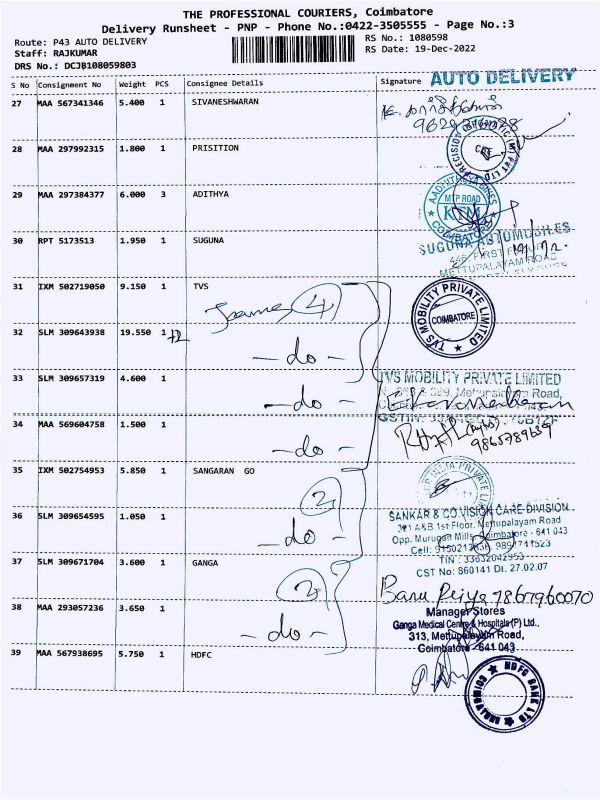 THE PROFESSIONAL COURIERS, Coimbatore
Delivery Runsheet - PNP - Phone No.:0422-3505555 - Page No.:3
Route: P43 AUTO DELIVERY
Staff: RAJKUMAR
DRS No.: DCJB108059803
RS No.: 1080598
RS Date: 19-Dec-2022
S No Consignment No Weight PCS Consignee Details Signature AUTO DELIVERY
27 MAA 567341346 5.400 1 SIVANESHWARAN
28 MAA 297992315 1.800 1 PRISITION
29 MAA 297384377 6.000 3 ADITHYA
MTP ROAD
KTM
COIMBATORE
30 RPT 5173513 1.950 1 SUGUNA
SUGUNA AUTOMOBILES
METTUPALAYAM ROAD
31 IXM 502719050 9.150 1 TVS
4
TVS MOBILITY PRIVATE LIMITED
COIMBATORE
32 SLM 309643938 19.550 1
- do -
33 SLM 309657319 4.600 1
- do -
TVS MOBILITY PRIVATE LIMITED
34 MAA 569604758 1.500 1
- do -
9865789689
35 IXM 502754953 5.850 1 SANGARAN GO
2
36 SLM 309654595 1.050 1
- do -
SANKAR & CO.VISION CARE DIVISION
321 A&B.1st Floor. Mettupalayam Road
Opp. Murugan Mills, Coimbatore - 641 043
TIN : 33632042953
CST No: 860141 Dt. 27.02.07
37 SLM 309671704 3.600 1 GANGA
2
Banu Priya 7867960070
38 MAA 293057236 3.650 1
- do -
Manager Stores
Ganga Medical Centre & Hospitals (P) Ltd.,
313, Mettupalayam Road,
Coimbatore - 641 043
39 MAA 567938695 5.750 1 HDFC
HDFC BANK LTD
COIMBATORE